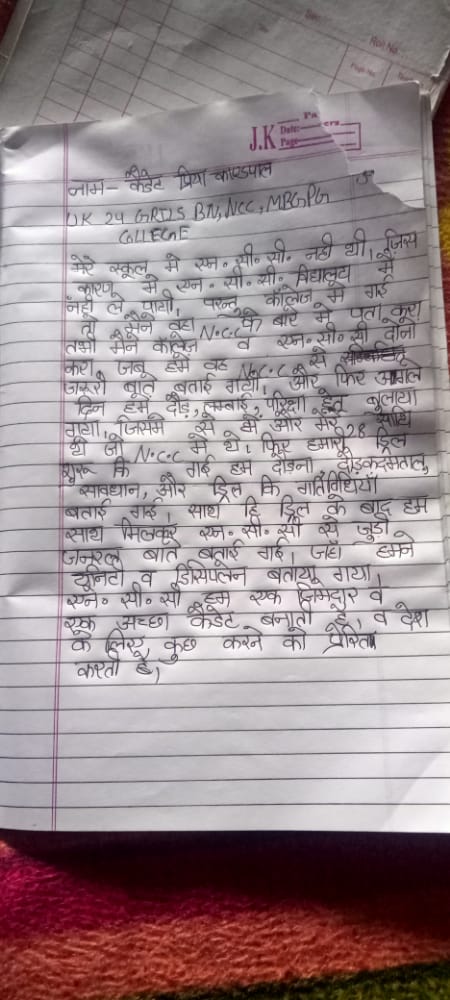 Roll No.
Page No.
J.K
Date:
Page
नाम - कैडेट प्रिया काण्डपाल
UK 24 GRLS BN, NCC, MBGPG
COLLEGE
मेरे स्कूल मे एन. सी. सी. नही थी, जिस
कारण मे एन. सी. सी. विद्यालय में
नही ले पायी, परन्तु कॉलेज मे गई
तो मैंने वहा N.C.C के बारे मे पता करा
तभी मैने व एन. सी. सी दोनो
करा जब हमे वह N.C.C से
जरूरी बाते बताई गयी, और फिर अगले
दिन हमे दौड़, लम्बाई, परिक्षा हेतु बुलाया
गया, जिसमे से मे और मेरे 28 साथि
थे जो N.C.C मे थे। फिर हमारी ड्रिल
शुरू कि गई हमे दौडना, दौडकदमताल,
सावधान, और ड्रिल कि गतिविधियाँ
बताई गई, साथ हि ड्रिल के बाद हम
साथ मिलकर एन. सी. सी से जुडी
जनरल बाते बताई गई, जहाँ हमने
यूनिटी व डिसिपलेन बताया गया,
एन. सी. सी हमे एक जिमदार व
एक अच्छा कैडेट बनाती है, व देश
के लिए कुछ करने को प्रेरित
करती है,